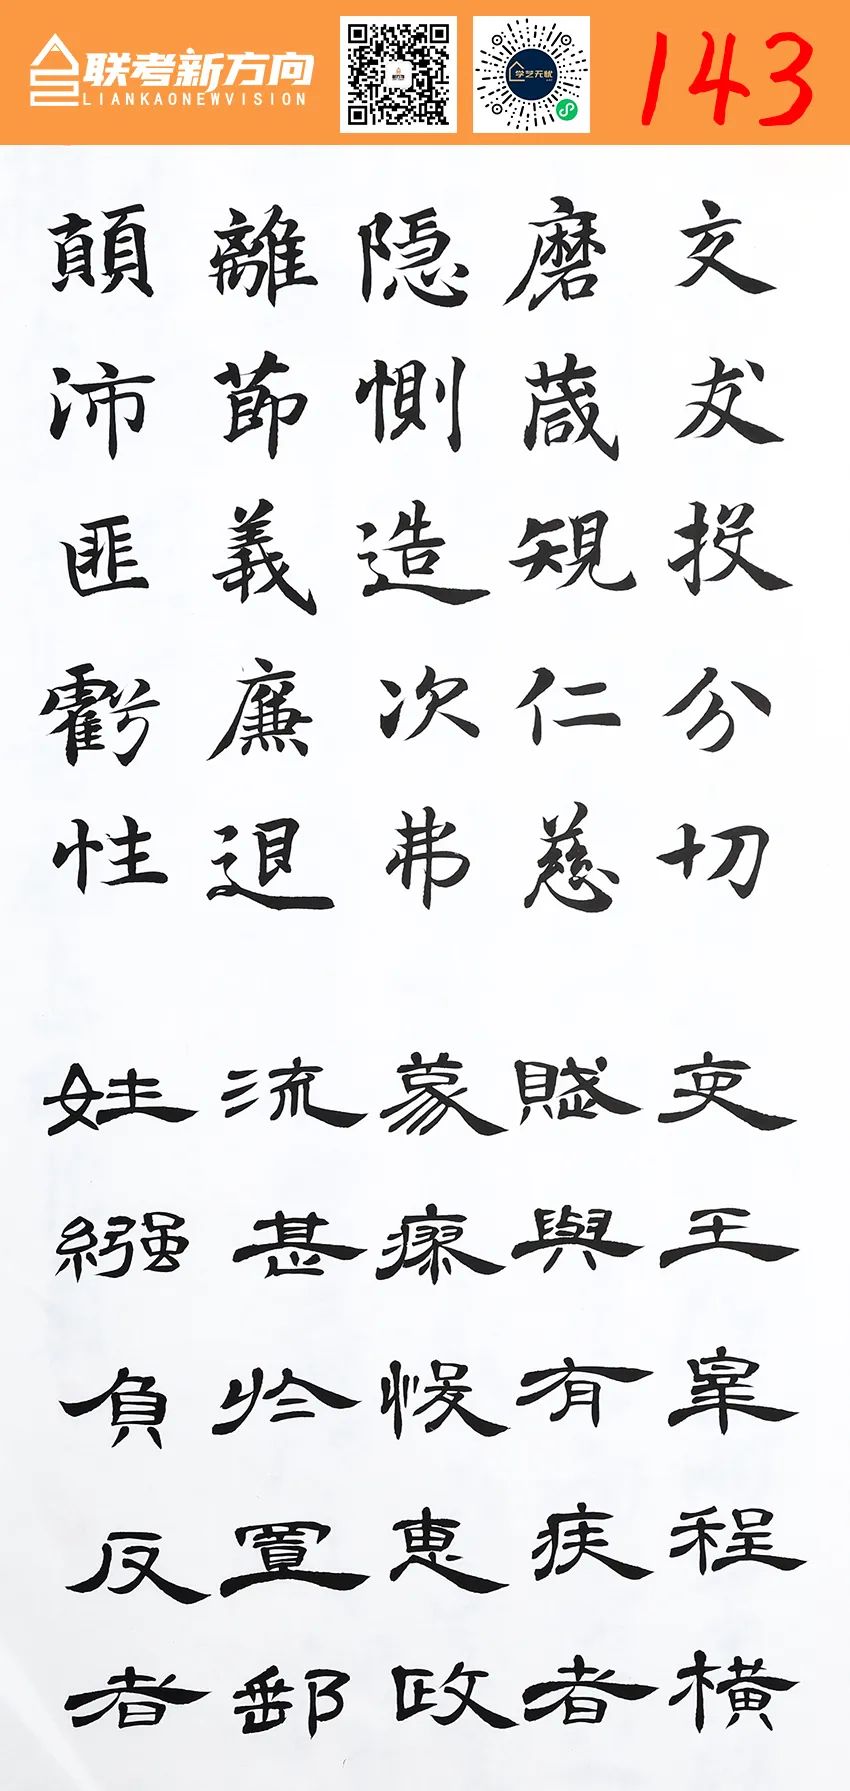 联考新方向
LIANKAONEWVISION
学艺无忧
143
交友投分切
磨箴規仁慈
隐惻造次弗
離節義廉退
顛沛匪虧性
吏王皋程橫
賦與有疾者
蒙瘳悛惠政
流甚於置郵
姓繦負反者